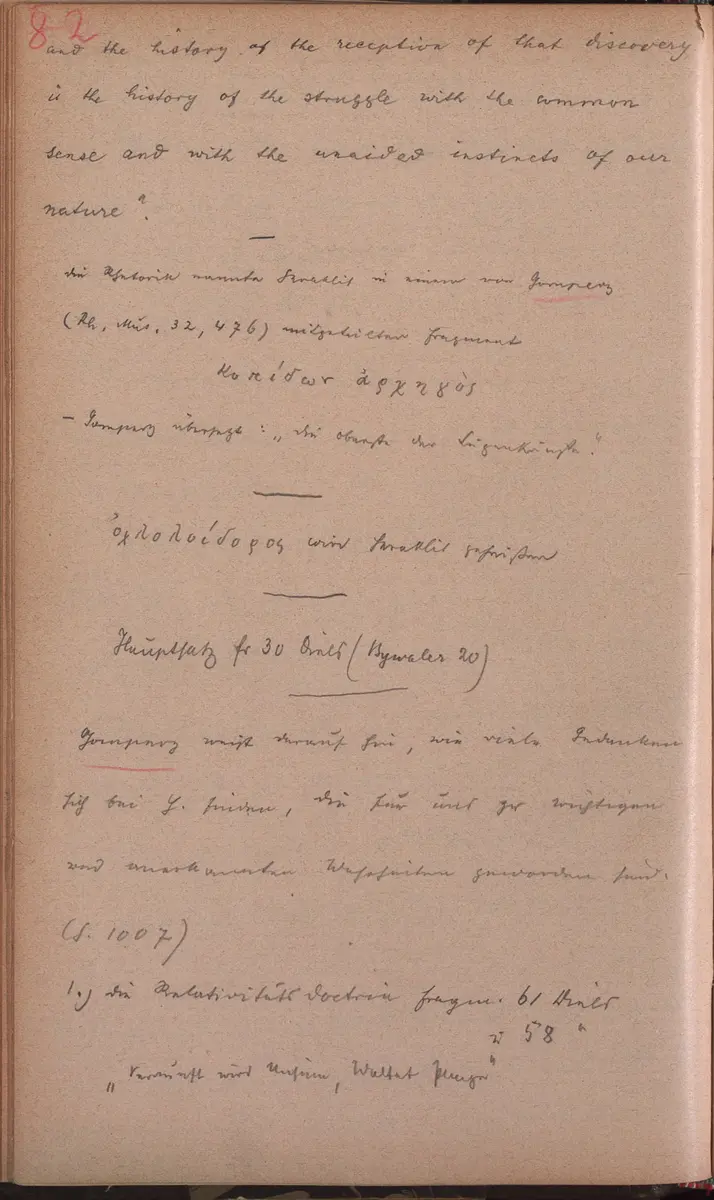 82
and the history of the reception of that discovery
is the history of the struggle with the common
sense and with the unaided instincts of our
nature".
die Rhetorik nannte Heraklit in einem von Gomperz
(Rh. Mus. 32, 476) mitgeteilten Fragment
κοπίδων ἀρχηγὸς
– Gomperz übersetzt: „die oberste der Lügenkünste."
ὀχλολοίδορος wird Heraklit geheißen
Hauptsatz fr 30 Diels (Bywater 20)
Gomperz weist darauf hin, wie viele Gedanken
sich bei H. finden, die für uns zu wichtigen
und anerkannten Wahrheiten geworden sind.
(S. 1007)
1.) die Relativitäts doctrin fragm. 61 Diels
u 58 "
„Vernunft wird Unsinn, Wohltat Plage"